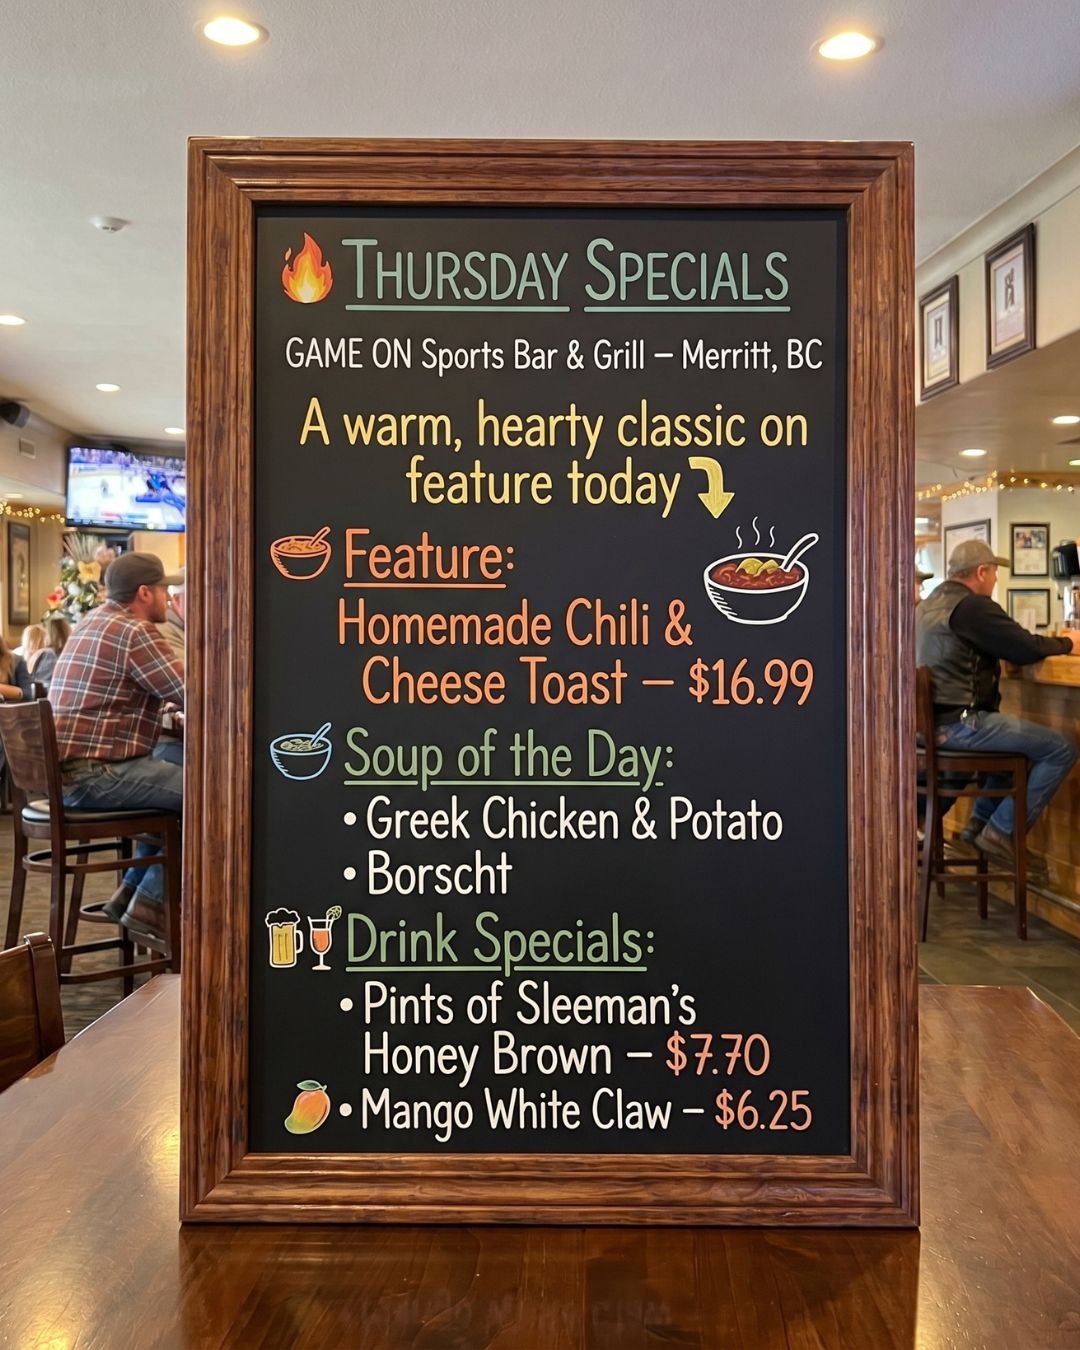 THURSDAY SPECIALS
GAME ON Sports Bar & Grill – Merritt, BC
A warm, hearty classic on
feature today
Feature:
Homemade Chili &
Cheese Toast – $16.99
Soup of the Day:
• Greek Chicken & Potato
• Borscht
Drink Specials:
• Pints of Sleeman's
Honey Brown – $7.70
• Mango White Claw – $6.25